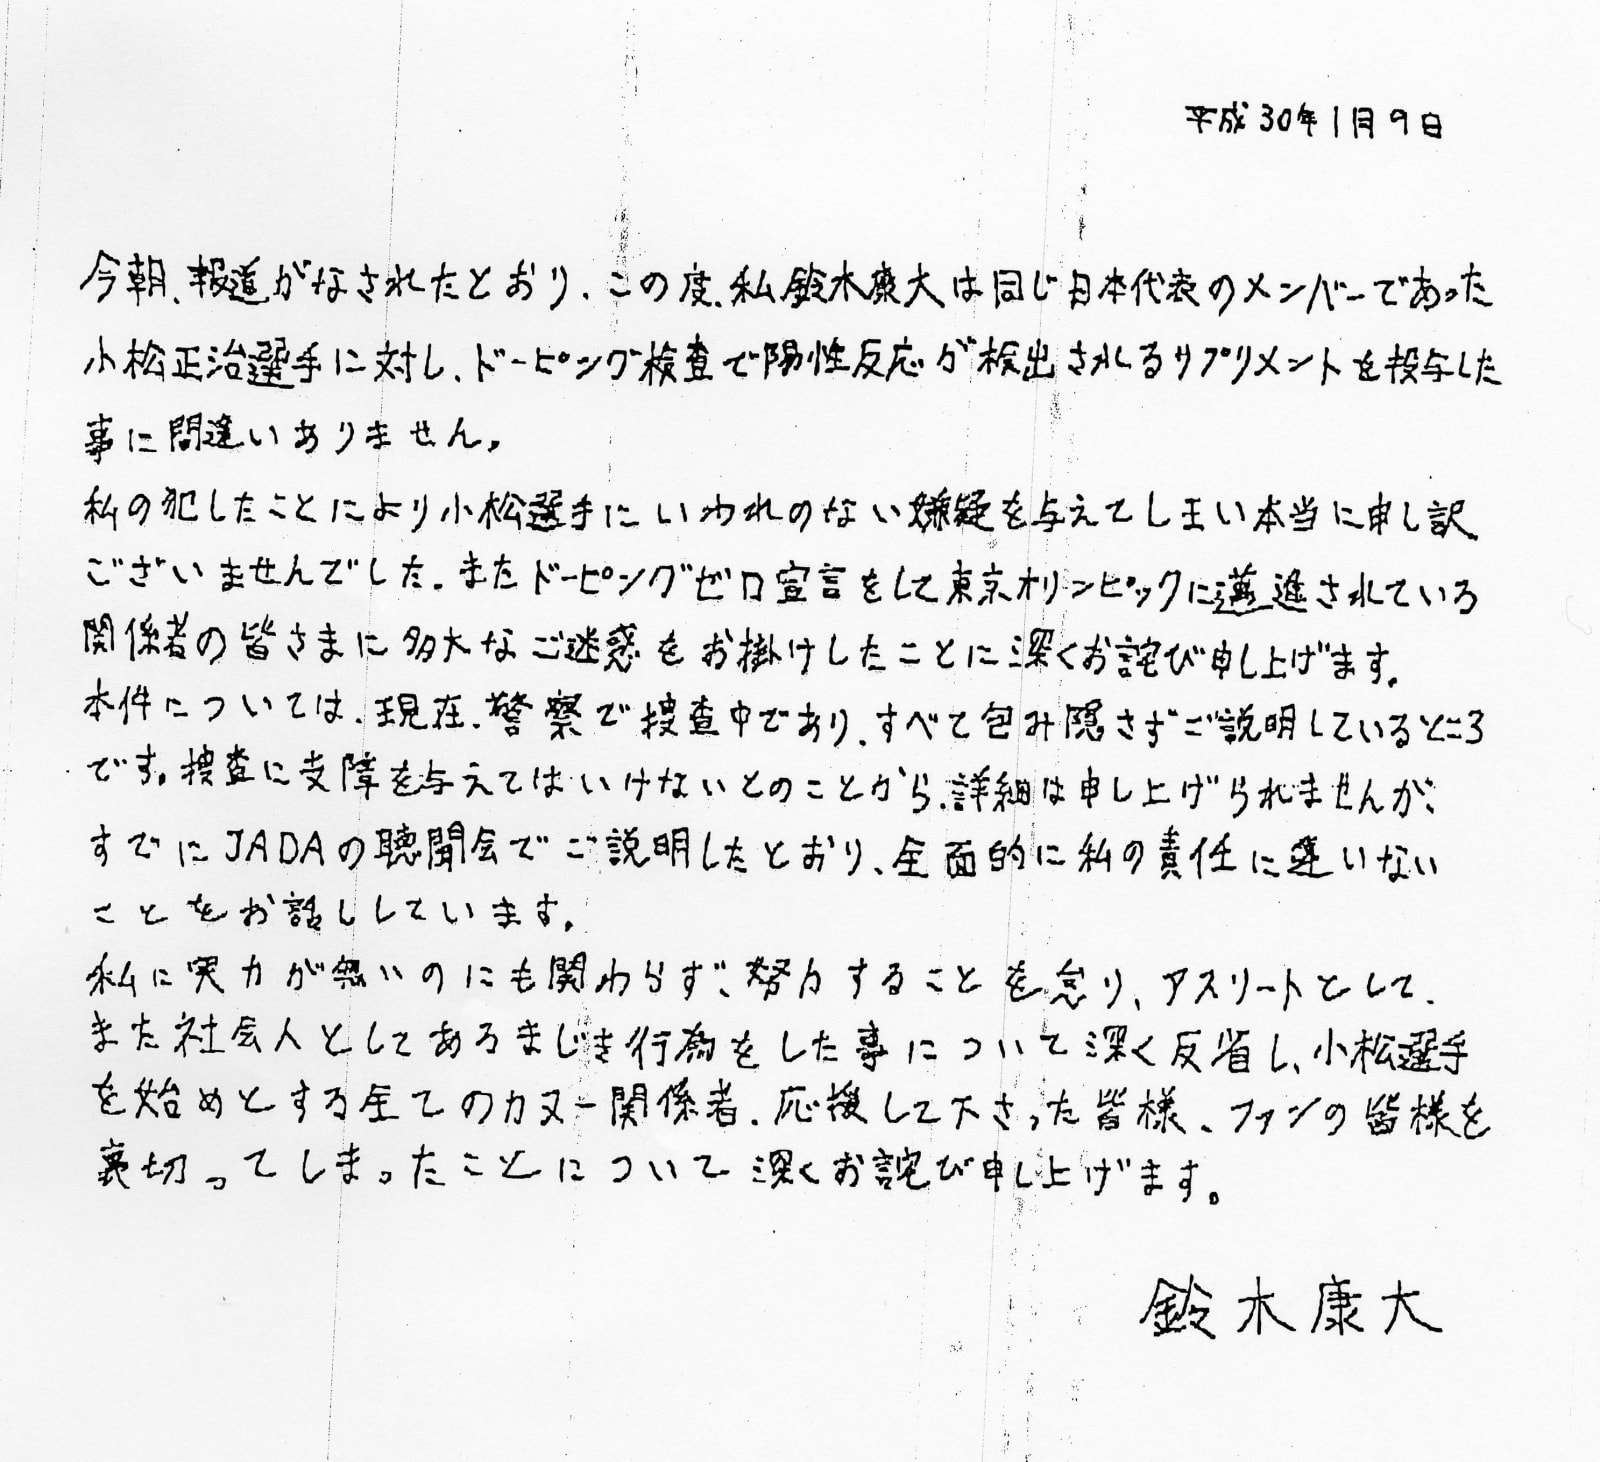 平成30年1月9日
今朝、報道がなされたとおり、この度、私鈴木康大は同じ日本代表のメンバーであった
小松正治選手に対し、ドーピング検査で陽性反応が検出されるサプリメントを投与した
事に間違いありません。
私の犯したことにより小松選手にいわれのない嫌疑を与えてしまい本当に申し訳
ございませんでした。またドーピングゼロ宣言をして東京オリンピックに邁進されている
関係者の皆さまに多大なご迷惑をお掛けしたことに深くお詫び申し上げます。
本件については、現在、警察で捜査中であり、すべて包み隠さずご説明しているところ
です。捜査に支障を与えてはいけないとのことから、詳細は申し上げられませんが、
すでにJADAの聴聞会でご説明したとおり、全面的に私の責任に違いない
ことをお話ししています。
私に実力が無いのにも関わらず、努力することを怠り、アスリートとして、
また社会人としてあるまじき行為をした事について深く反省し、小松選手
を始めとする全てのカヌー関係者、応援して下さった皆様、ファンの皆様を
裏切ってしまったことについて深くお詫び申し上げます。
鈴木康大